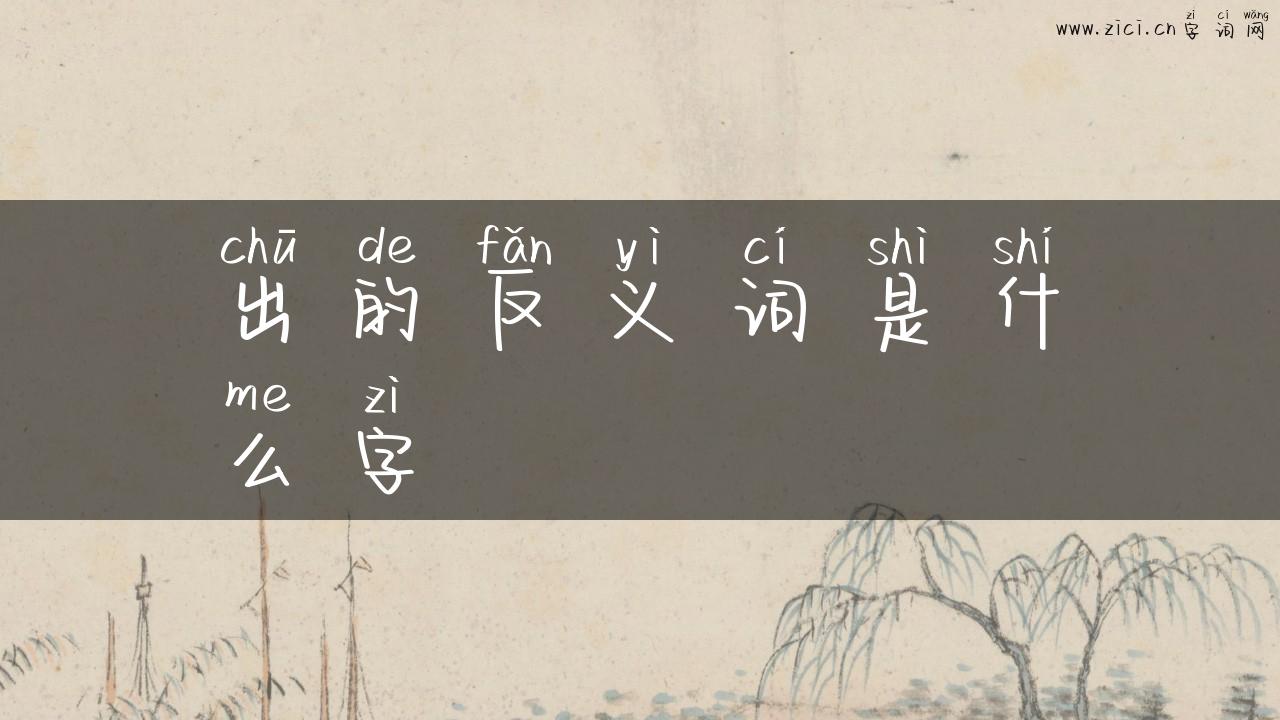 zì cí wǎng
www.zici.cn 字词网
chū de fǎn yì cí shì shí
出的反义词是什
me zì
么字